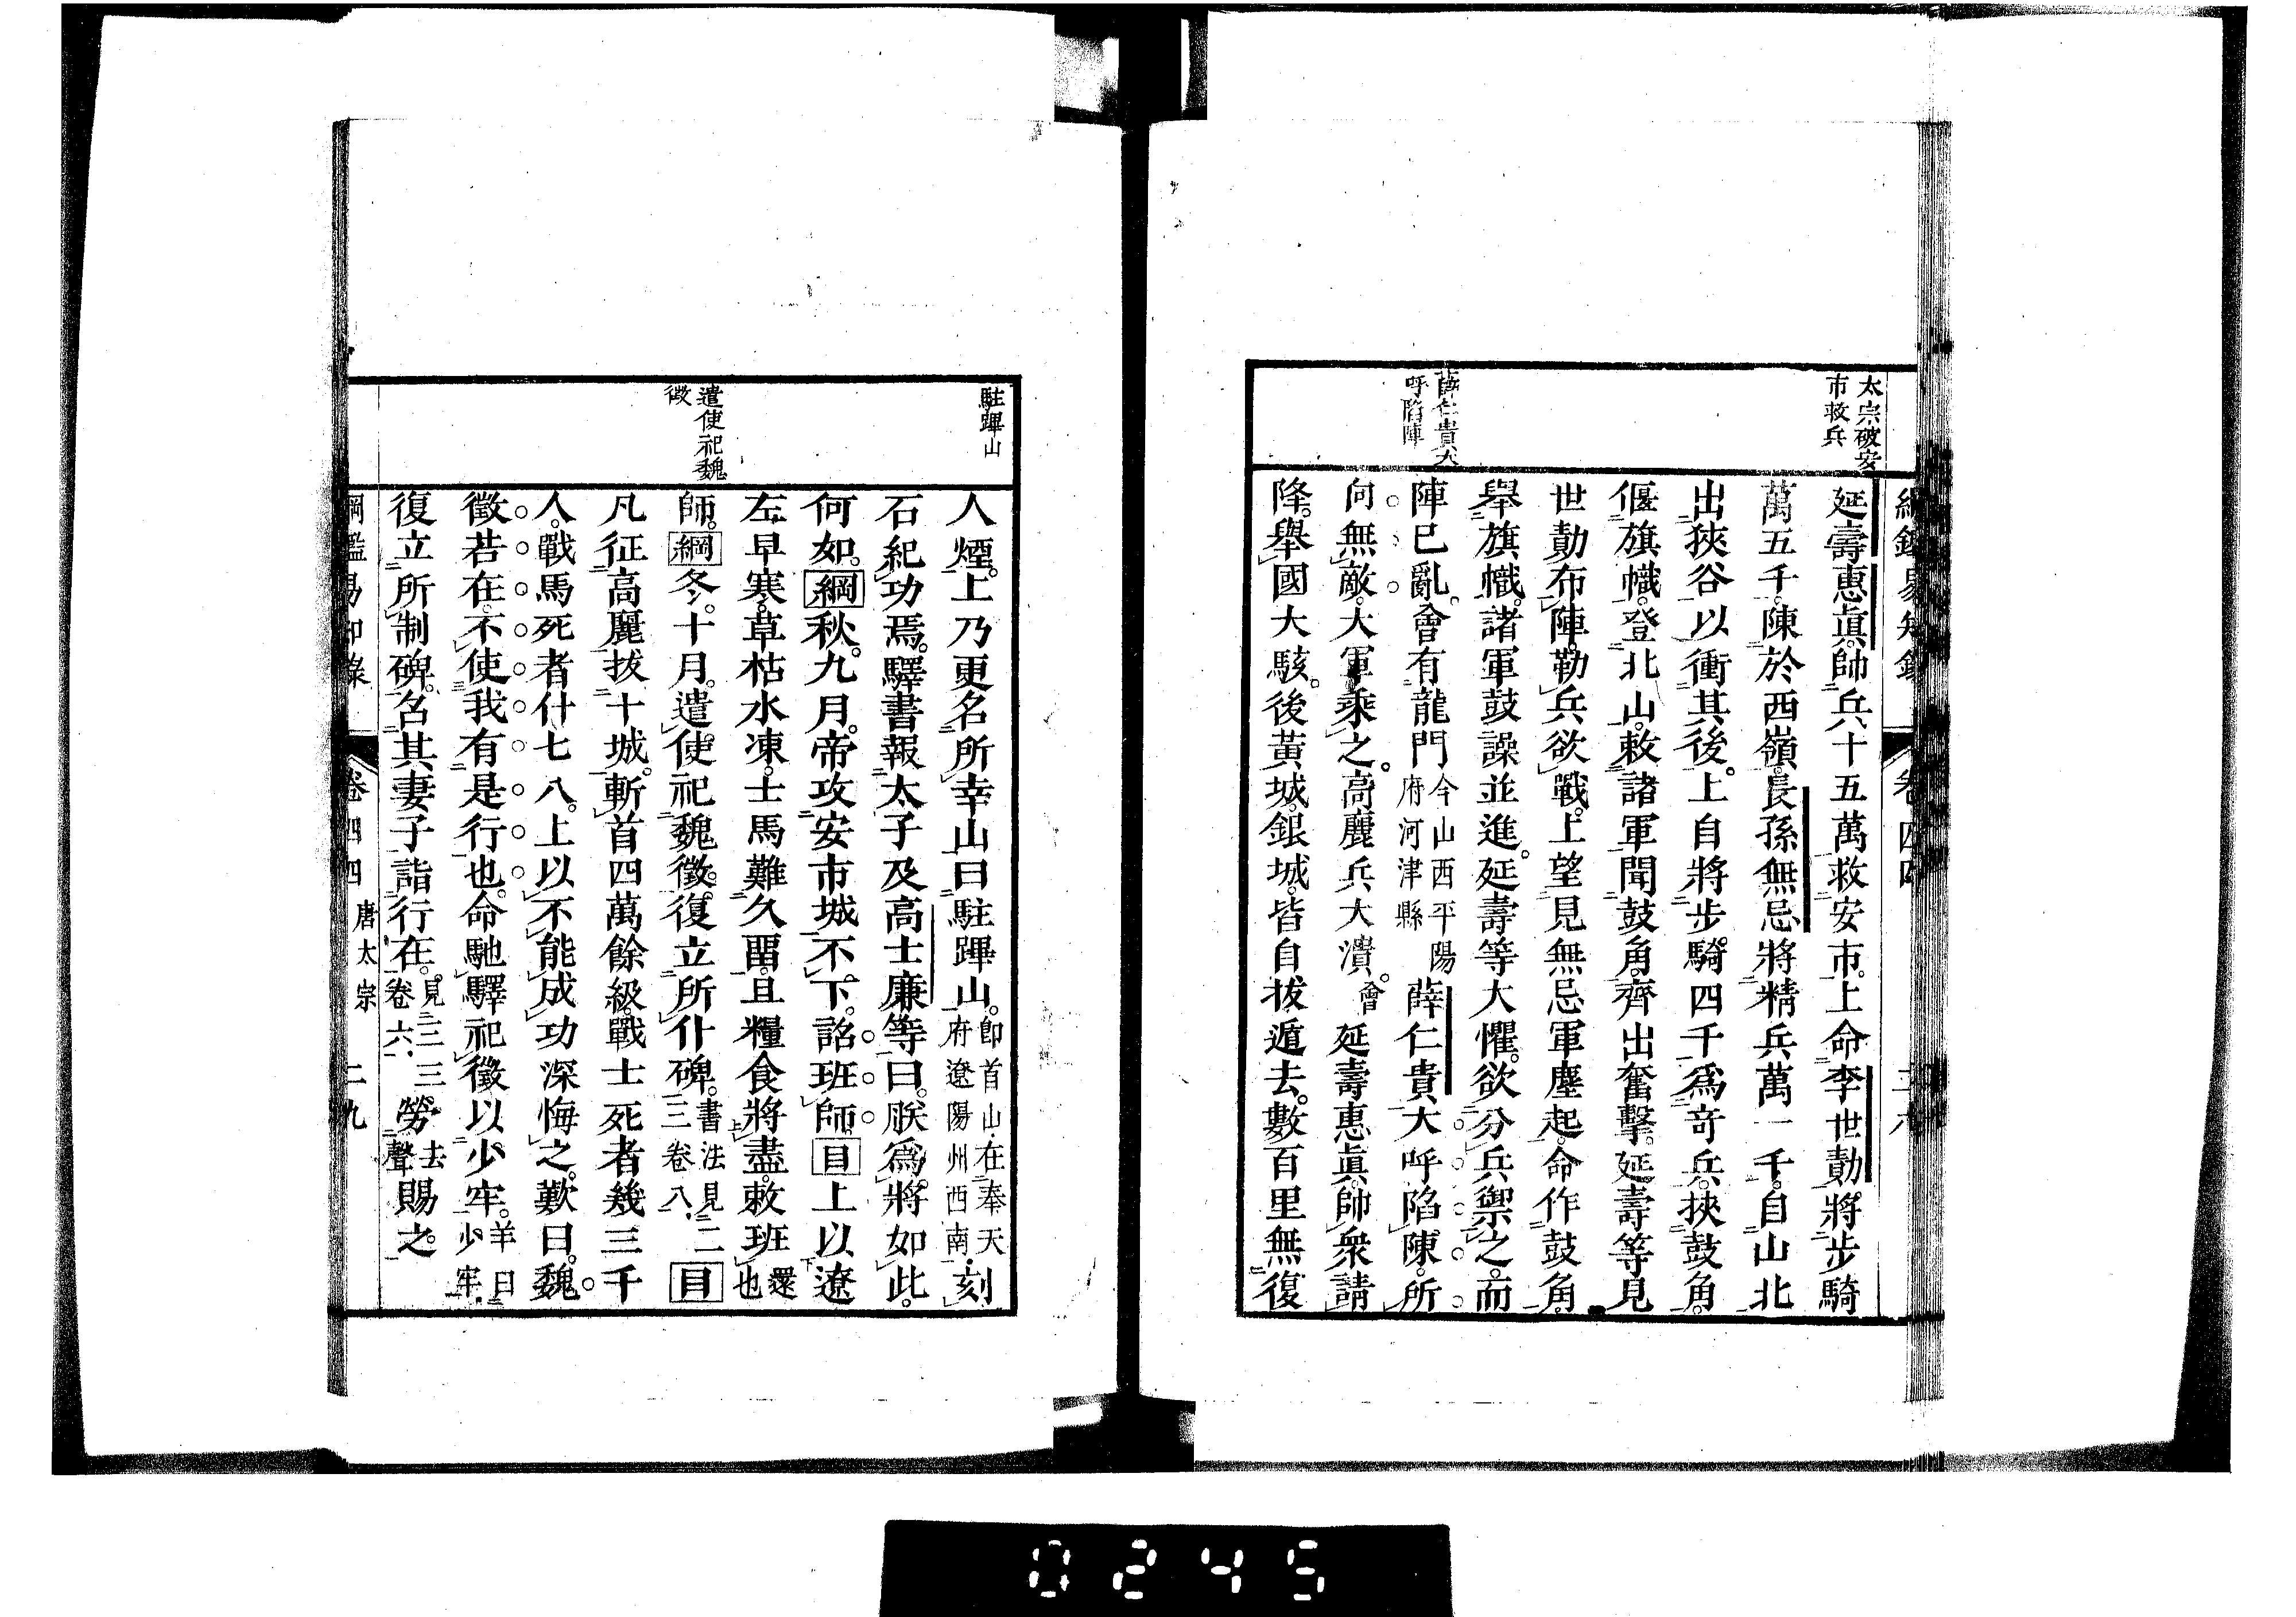 太宗破安
市救兵
薛仁貴大
呼陷陣
延壽惠眞帥兵十五萬救安市上命李世勣將步騎
萬五千陳於西嶺長孫無忌將精兵萬一千自山北
出狹谷以衝其後上自將步騎四千爲奇兵挾鼓角
偃旗幟登北山敕諸軍聞鼓角齊出奮擊延壽等見
世勣布陣勒兵欲戰上望見無忌軍塵起命作鼓角
舉旗幟諸軍鼓譟並進延壽等大懼欲分兵禦之而
陣已亂會有龍門今山西平陽府河津縣薛仁貴大呼陷陳所
向無敵大軍乘之高麗兵大潰會延壽惠眞帥衆請
降舉國大駭後黃城銀城皆自拔遁去數百里無復
駐蹕山
遣使祀魏
徵
人煙上乃更名所幸山曰駐蹕山卽首山在奉天府遼陽州西南刻
石紀功焉驛書報太子及高士廉等曰朕爲將如此
何如綱秋九月帝攻安市城不下詔班師目上以遼
左早寒草枯水凍士馬難久畱且糧食將盡敕班還也
師綱冬十月遣使祀魏徵復立所仆碑書法見二三卷八目
凡征高麗拔十城斬首四萬餘級戰士死者幾三千
人戰馬死者什七八上以不能成功深悔之歎曰魏
徵若在不使我有是行也命馳驛祀徵以少牢羊曰少牢
復立所制碑召其妻子詣行在見三三卷六勞去聲賜之
綱鑑易知錄 卷四四 唐太宗 二九